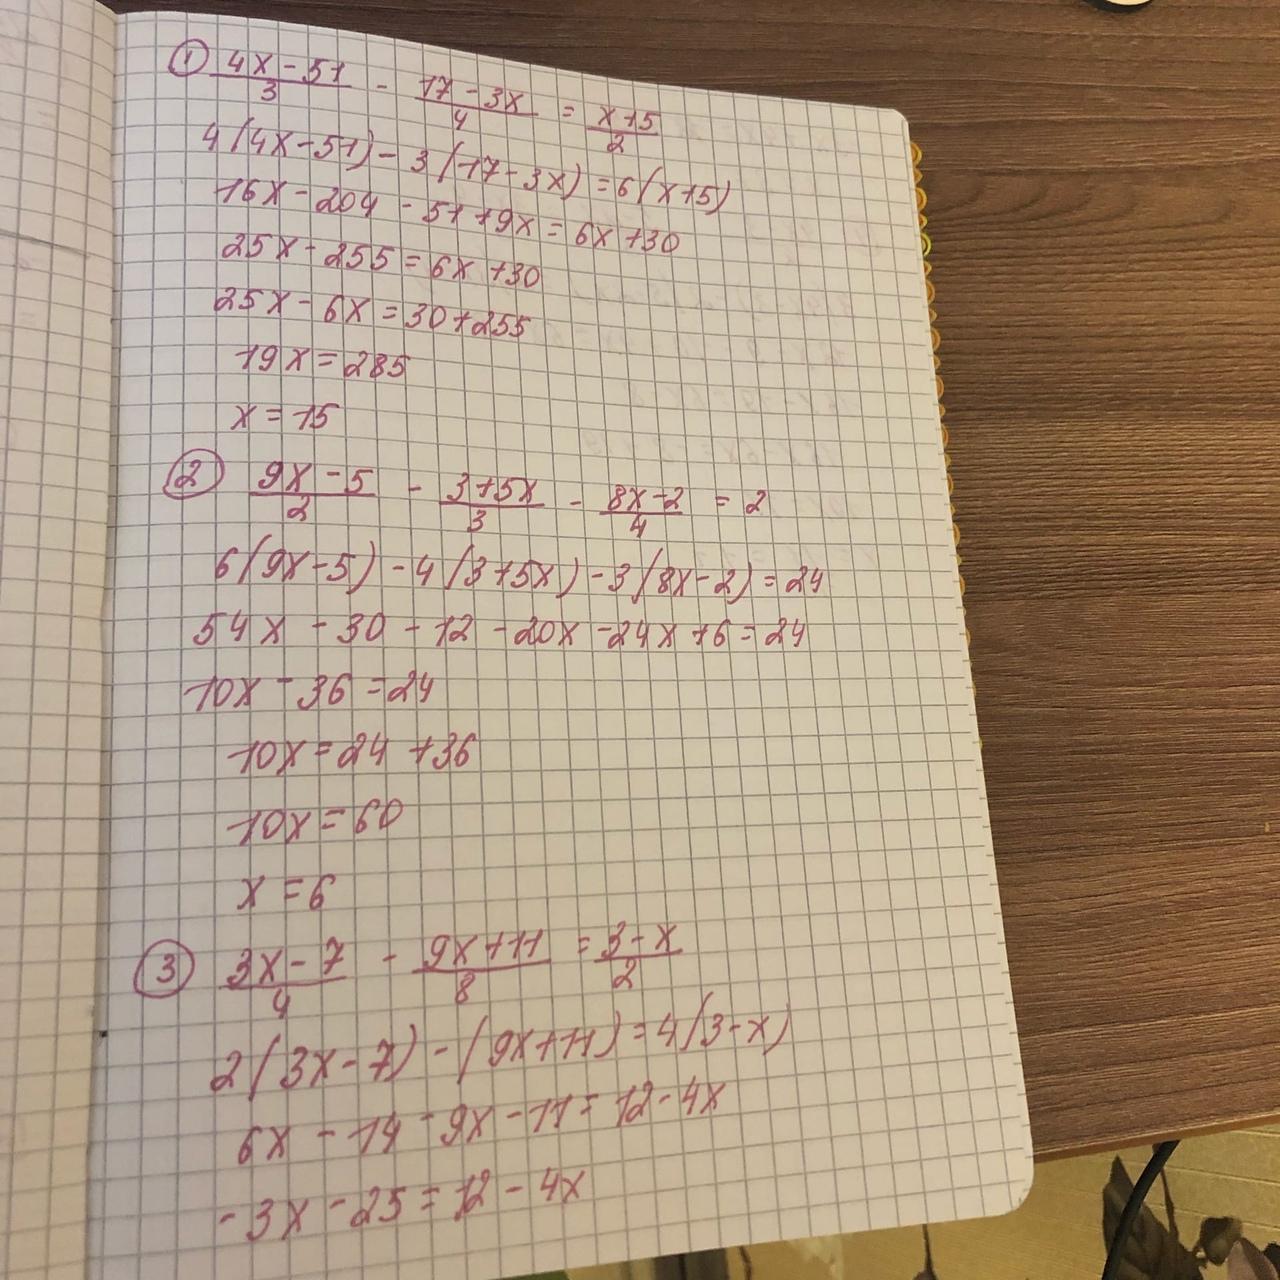 ① (4x-51)/3 - (17-3x)/4 = (x+5)/2
4(4x-51)-3(17-3x)=6(x+5)
16x-204-51+9x=6x+30
25x-255=6x+30
25x-6x=30+255
19x=285
x=15
② (9x-5)/2 - (3+5x)/3 - (8x-2)/4 = 2
6(9x-5)-4(3+5x)-3(8x-2)=24
54x-30-12-20x-24x+6=24
10x-36=24
10x=24+36
10x=60
x=6
③ (3x-7)/4 - (9x+11)/8 = (3-x)/2
2(3x-7)-(9x+11)=4(3-x)
6x-14-9x-11=12-4x
-3x-25=12-4x